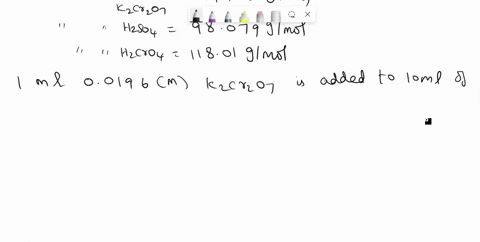 K2Cr2O7
" " H2SO4 = 98.079 g/mol
" " H2CrO4 = 118.01 g/mol
1 ml 0.0196 (M) K2Cr2O7 is added to 10ml of